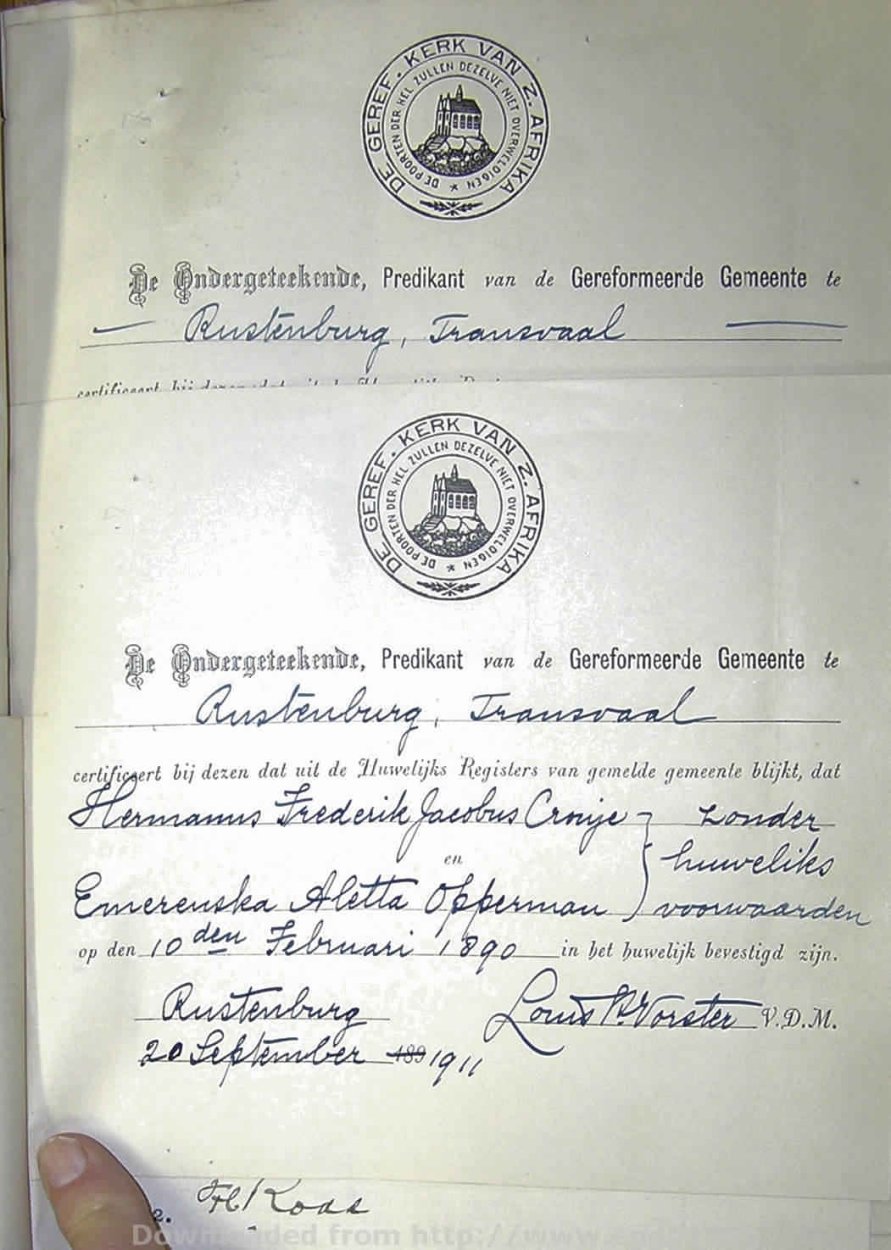 DE GEREF. KERK VAN Z. AFRIKA
DE POORTEN DER HEL ZULLEN DEZELVE NIET OVERWELDIGEN
De Ondergeteekende, Predikant van de Gereformeerde Gemeente te
Rustenburg, Transvaal
certificeert bij dezen dat uit de
DE GEREF. KERK VAN Z. AFRIKA
DE POORTEN DER HEL ZULLEN DEZELVE NIET OVERWELDIGEN
De Ondergeteekende, Predikant van de Gereformeerde Gemeente te
Rustenburg, Transvaal
certificeert bij dezen dat uit de Huwelijks Registers van gemelde gemeente blijkt, dat
Hermanus Frederik Jacobus Cronje zonder
en huweliks
Emerenska Aletta Opperman voorwaarden
op den 10 den Februari 1890 in het huwelijk bevestigd zijn.
Rustenburg Louis P. Vorster V.D.M.
20 September 189 1911
Downloaded from http://www.